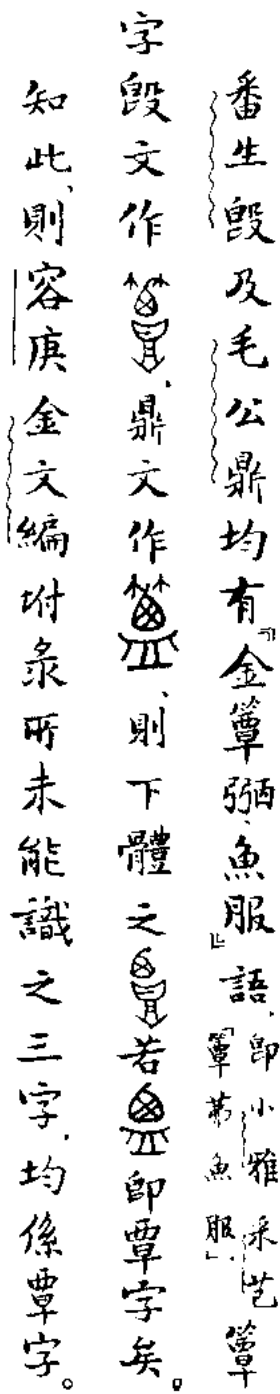 番生𣪘及毛公鼎均有『金簟弼、魚服』語，即小雅采芑簟
『簟茀魚服』，
字𣪘文作、鼎文作、則下體之若即覃字矣。
知此、則容庚金文編坿彔所未能識之三字，均係覃字。